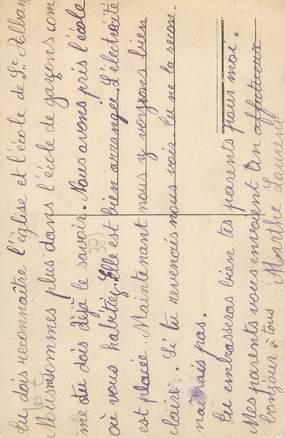 Tu dois reconnaître l'église et l'école de St Alban
Nous ne sommes plus dans l'école de garçons com
me tu dois déjà le savoir. Nous avons pris l'école
où vous habitiez. Elle est bien arrangée. L'électricité
est placée. Maintenant nous y voyons bien
clair. Si tu revenais nous voir tu ne la recon-
naîtrais pas.
Tu embrasseras bien tes parents pour moi.
Mes parents vous envoient un affectueux
bonjour à tous
Marthe Laurent